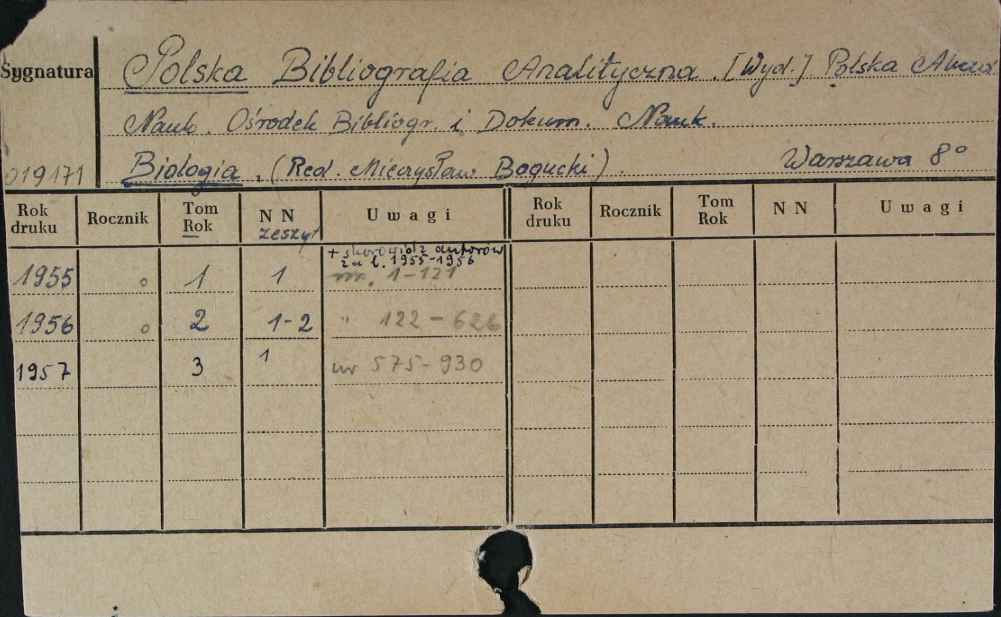 Sygnatura Polska Bibliografia Analityczna. [Wyd.] Polska Akad.
Nauk. Ośrodek Bibliogr. i Dokum. Nauk.
019171 Biologia. (Red. Mieczysław Bogucki). Warszawa 8°
Rok druku Rocznik Tom Rok N N zeszyt Uwagi Rok druku Rocznik Tom Rok N N Uwagi
+ skorowidz autorów
za l. 1955-1956
1955 o 1 1 nr. 1-121
1956 o 2 1-2 " 122-626
1957 3 1 nr 575-930